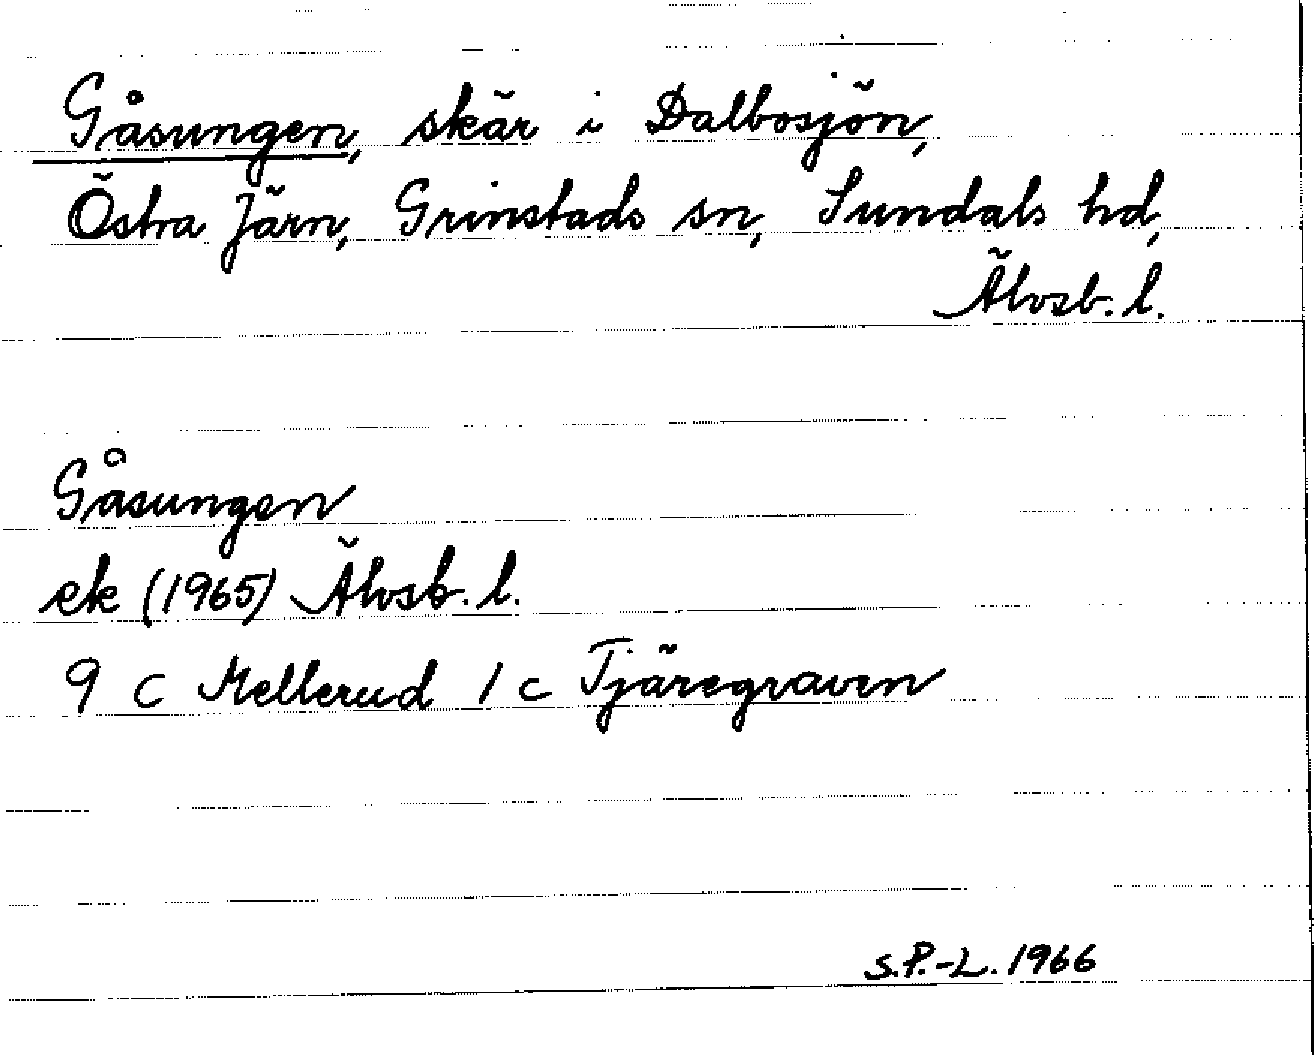 Gåsungen, skär i Dalbosjön,
Östra Järn, Grinstads sn, Sundals hd,
Älvsb. l.
Gåsungen
ek (1965) Älvsb. l.
9 c Mellerud 1 c Tjäregraven
S.P.-L. 1966